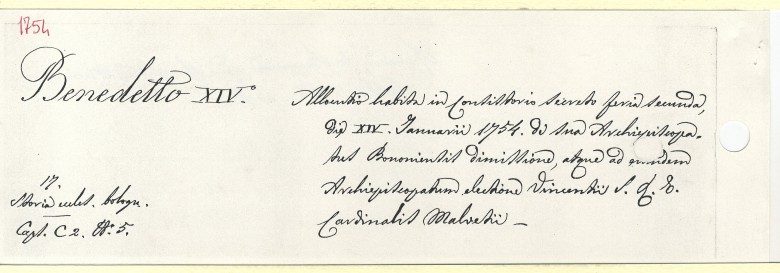 1754
Benedetto XIV.°
Allocutio habita in Consistorio secreto feria secunda,
die XIV. Januarii 1754. de sua Archiepiscopa-
tus Bononiensis dimissione, atque ad eundem
Archiepiscopatum electione Vincentii S. R. E.
Cardinalis Malvetii –
17.
Storia eccles. bologn.
Caps. C2. N° 5.